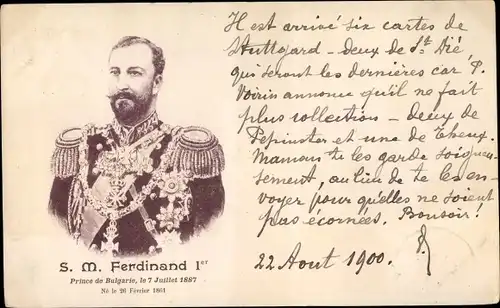 Il est arrivé six cartes de
Stuttgard - deux de St Dié
qui seront les dernières car P.
Voirin annonce qu'il ne fait
plus collection - deux de
Pepinster et une de Theux.
Maman te les garde soigneu-
sement, au lieu de te les en-
voyer pour qu'elles ne soient
pas écornées. Bonsoir!
22 Aout 1900.
S. M. Ferdinand 1er
Prince de Bulgarie, le 7 Juillet 1887
Né le 26 Février 1861